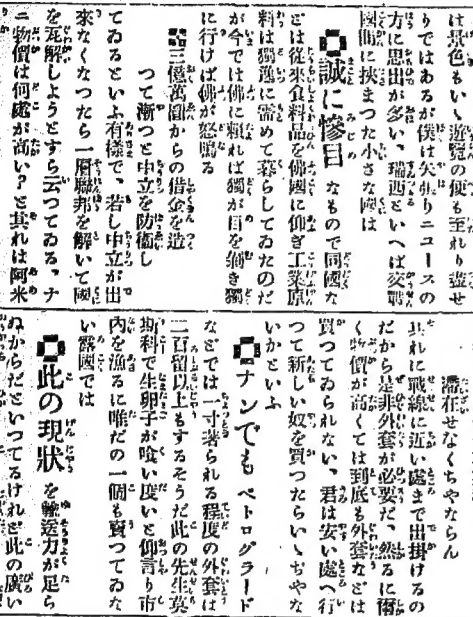 は景色もいゝ遊覽の便も至れり盡せ
りではあるが僕は矢張りニコースの
方に思出が多い、瑞西といへば交戰
國間に挾まつた小さな國は
誠に慘目 なもので同國な
どは從來食料品を佛國に仰ぎ工業原
料は獨逸に需めて暮らしてゐたのだ
が今では佛に頼れば獨が目を剝き獨
に行けば佛が怒鳴る
三億萬圓からの借金を造
つて漸つと中立を防衞し
てゐるといふ有樣で、若し中立が出
來なくなつたら一層聯邦を解いて國
を瓦解しようとすら云つてゐる、ナ
ニ物價は何處が高い?と其れは阿米
滯在せなくちやならん
其れに戰線に近い處まで出掛けるの
だから是非外套が必要だ、然るに爾
く物價が高くては到底も外套などは
買つてゐられない、君は安い處へ行
つて新しい奴を買つたらいゝぢやな
いかといふ
ナンでも ペトログラード
などでは一寸著られる程度の外套は
二百留以上もするそうだ此の先生莫
斯科で生卵子が喰い度いと仰言り市
內を漁るに唯だの一個も賣つてゐな
い露國では
此の現狀 を輸送力が足ら
ぬからだといつてるけれど此の廣い